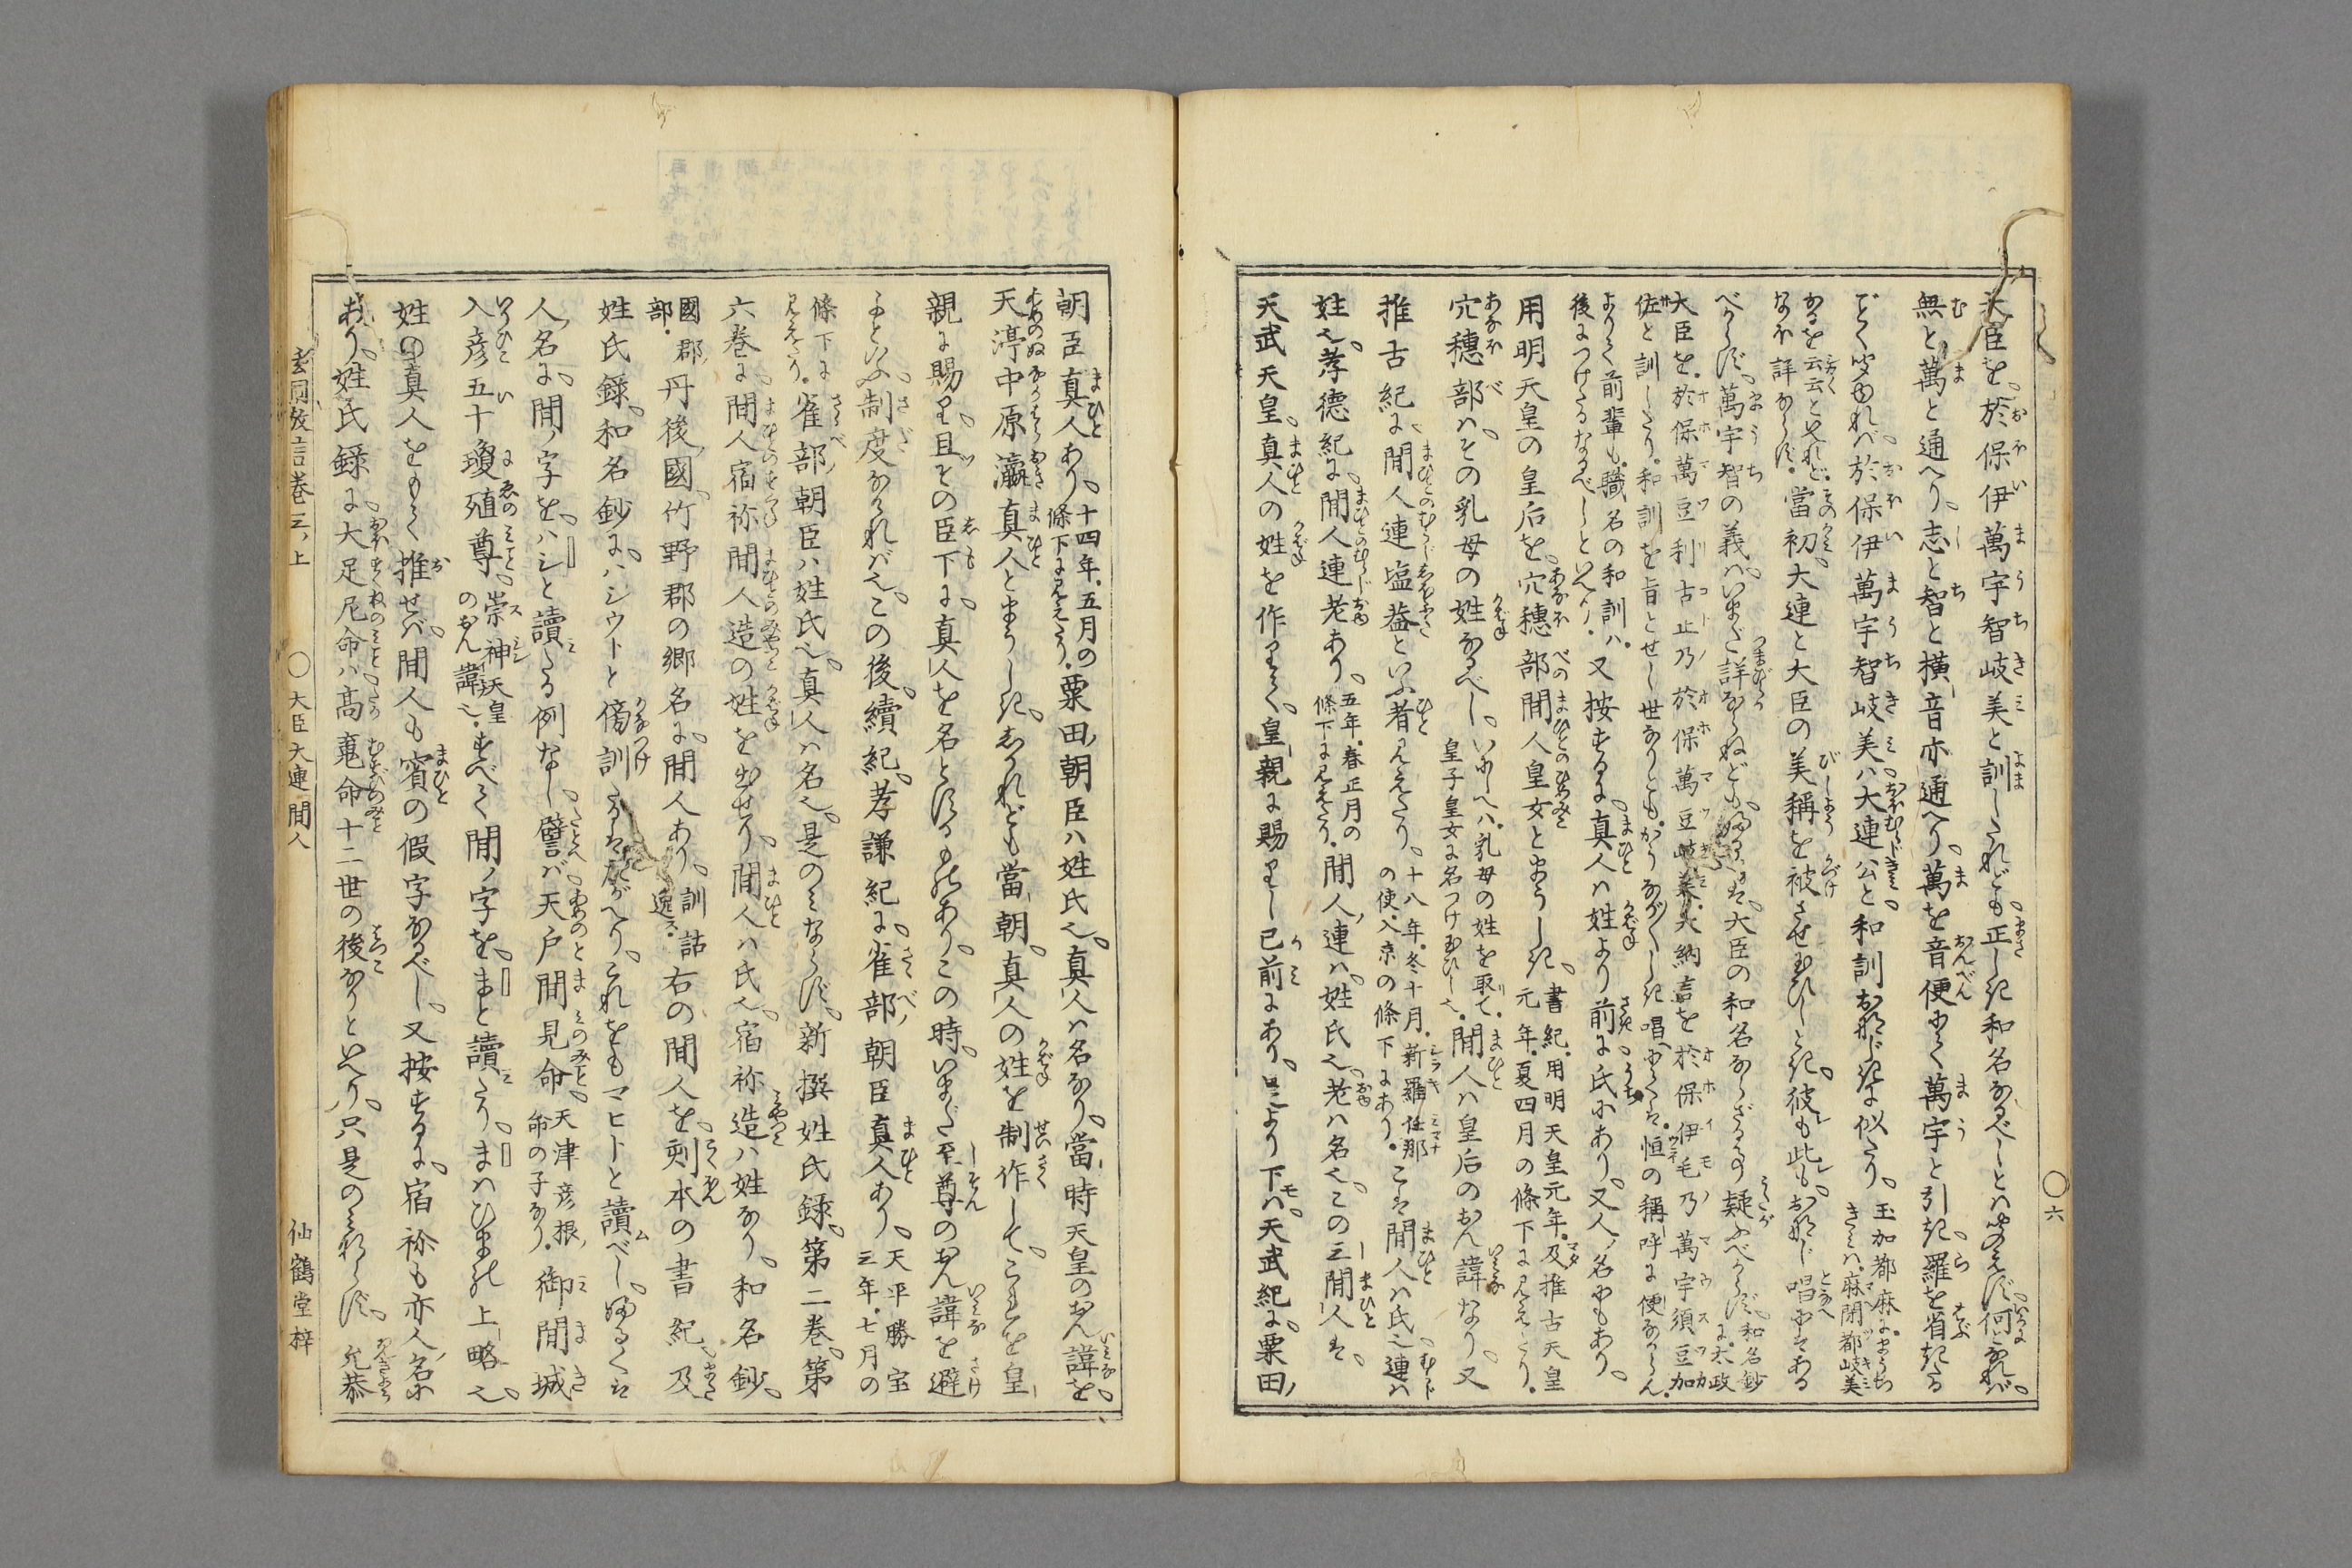 大臣を、於保伊萬宇智岐美と訓したれども、正しき和名なるべしとは聞えず、何となれば、
無と萬と通へり、志と智と横音亦通へり、萬を音便にて萬宇と引き、羅を省きたる
ごとく聞ゆれば、於保伊萬宇智岐美ハ、大連公と、和訓おなじきに似たり、玉加都麻に、まうち
きミハ、麻閉都岐美
なるを云云といへれど、
なほ詳ならず、當初、大連と大臣の美稱を被させ玉ひしとき、彼も此も、おなじ唱にてある
べからず、萬宇智の義ハ、いまだ詳ならねども、大臣の和名ならざるの疑ふべからず、和名鈔
に、太政
大臣を、於保萬豆利古止乃於保萬豆岐美、大納言を於保伊毛乃萬宇須豆加
佐と訓したり、和訓を旨とせし世なりとも、かうながくしき唱にては、恒の稱呼に便ならん、
よりて前輩も、職名の和訓ハ、
後につけたるなるべしといへり、又按ずるに、真人ハ姓より前に氏にあり、又人ノ名にもあり、
用明天皇の皇后を、穴穗部間人皇女とまうしき、書紀、用明天皇元年、及推古天皇
元年、夏四月の條下に見えたり、
穴穗部ハ、その乳母の姓なるべし、いにしへハ、乳母の姓を取て、
皇子皇女に名つけ玉ひし也、間人ハ皇后のおん諱なり、又
推古紀に、間人連塩蓋といふ者見えたり、十八年、冬十月、新羅任那
の使、入京の條下にあり、こは間人ハ氏也、連ハ
姓也、孝徳紀に、間人連老あり、五年、春正月の
條下に見えたり、間人ノ連ハ、姓氏也、老ハ名也、この三間人は、
天武天皇、真人の姓を作りて、皇親に賜りし已前にあり、是より下ハ、天武紀に、粟田ノ
朝臣真人あり、十四年、五月の
條下に見えたり、粟田ノ朝臣ハ姓氏也、真人ハ名なり、當時天皇のおん諱を、
天渟中原瀛真人とまうしき、しかれども當朝、真人の姓を制作して、これを皇
親に賜り、且その臣下に、真人を名とするものあり、この時、いまだ至尊のおん諱を避
るといふ制度なければ也、この後、續紀、孝謙紀に、雀部ノ朝臣真人あり、天平勝宝
三年、七月の
條下に
見えたり、雀部ノ朝臣ハ姓氏也、真人ハ名也、是のミならず、新撰姓氏録、第二巻、第
六巻に、間人宿祢間人造の姓を出せり、間人ハ氏也、宿祢造ハ姓なり、和名鈔、
國郡ノ
部、丹後ノ國、竹野郡の郷名に、間人あり、訓詁
逸ス、右の間人を、刻本の書紀、及
姓氏録、和名鈔に、ハシウトと傍訓したるは、たがへり、これをもマヒトと讀べし、ふるくは
人ノ名に、間ノ字を、ハシと讀たる例なし、譬バ天戸間見命、天津彦根ノ
命の子なり、御間城
入彦五十瓊殖尊、崇神天皇
のおん諱也、すべて間ノ字を、まと讀たり、まハひまの上略也、
姓の真人をもて推せば、間人も賓の假字なるべし、又按ずるに、宿祢も亦人ノ名に
あり、姓氏録に、大足尼命ハ、高䰠命十二世の後なりといへり、只是のミならず、允恭
玄同放言巻三ノ上
○大臣大連 間人
仙鶴堂梓
○六